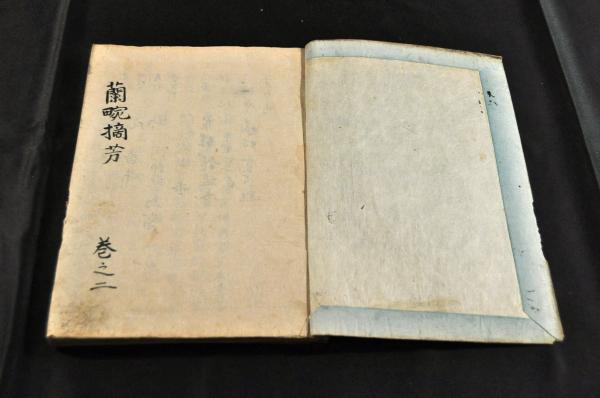 蘭畹摘芳
巻之二